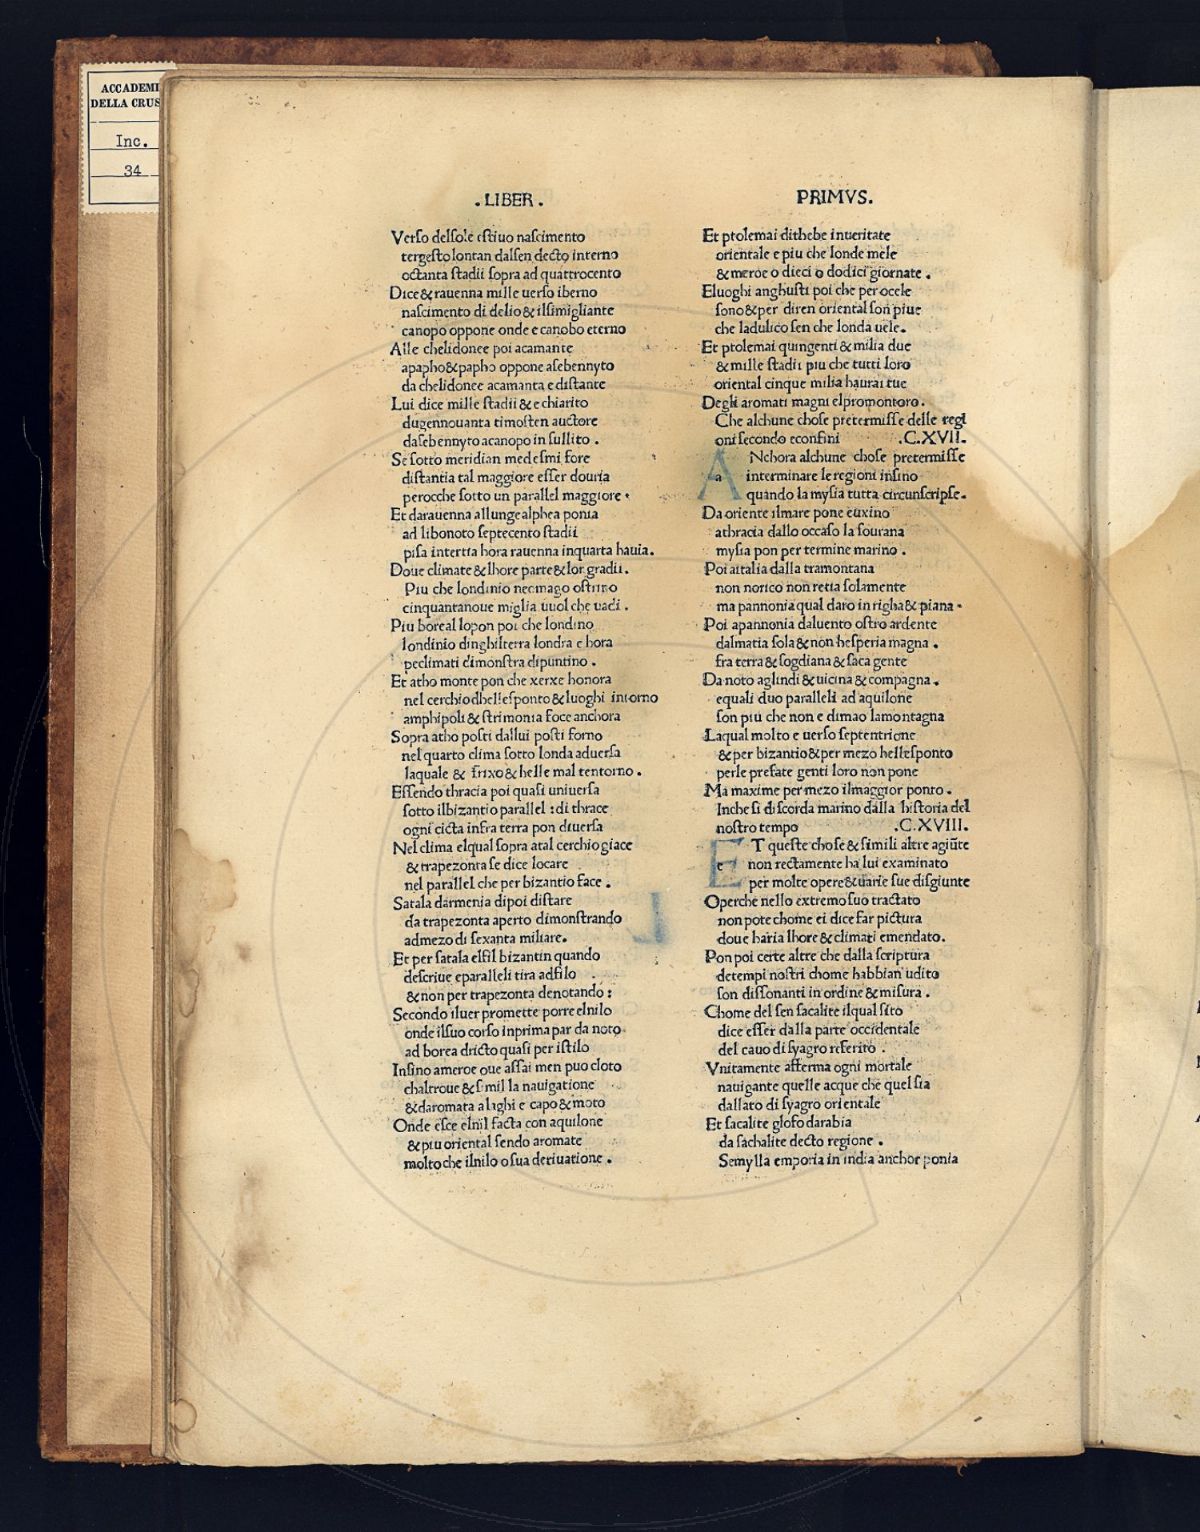 ACCADEMI
DELLA CRUS
Inc.
34
. LIBER .
Verso delsole estiuo nascimento
tergesto lontan dalsen decto interno
octanta stadii sopra ad quattrocento
Dice & rauenna mille uerso iberno
nascimento di delio & ilsimigliante
canopo oppone onde e canobo eterno
Alle chelidonee poi acamante
apapho & papho oppone asebennyto
da chelidonee acamanta e distante
Lui dice mille stadii & e chiarito
dugennouanta timosten auctore
dasebennyto acanopo in sullito .
Se sotto meridian medesmi fore
distantia tal maggiore esser douria
perocche sotto un parallel maggiore .
Et darauenna allunge alphea ponia
ad libonoto septecento stadii
pisa intertia hora rauenna inquarta hauia.
Doue climate & lhore parte & lor gradii .
Piu che londinio neomago ostrino
cinquantanoue miglia uuol che uadi .
Piu boreal lopon poi che londino
londinio dinghilterra londra e hora
peclimati dimonstra dipuntino .
Et atho monte pon che xerxe honora
nel cerchio dhellesponto & luoghi intorno
amphipoli & strimonia foce anchora
Sopra atho posti dallui posti forno
nel quarto clima sotto londa aduersa
laquale & frixo & helle mal tentorno .
Essendo thracia poi quasi uniuersa
sotto ilbizantio parallel : di thrace
ogni cicta infra terra pon diuersa
Nel clima elqual sopra atal cerchio giace
& trapezonta se dice locare
nel parallel che per bizantio face .
Satala darmenia dipoi distare
da trapezonta aperto dimonstrando
admezo di sexanta miliare.
Et per satala elfil bizantin quando
descriue eparalleli tira adfilo
& non per trapezonta denotando :
Secondo iluer promette porre elnilo
onde ilsuo corso inprima par da noto
ad borea dricto quasi per istilo
Insino ameroe oue assai men puo cloto
chaltroue & simil la nauigatione
& daromata alaghi e capo & moto
Onde esce elnil facta con aquilone
& piu oriental sendo aromate
molto che ilnilo o sua deriuatione .
PRIMVS.
Et ptolemai dithebe inueritate
orientale e piu che londe mele
& meroe o dieci o dodici giornate .
Eluoghi anghusti poi che per ocele
sono & per diren oriental son piue
che ladulico sen che londa uele.
Et ptolemai quingenti & milia due
& mille stadii piu che tutti loro
oriental cinque milia haurai tue
Degli aromati magni elpromontoro .
Che alchune chose pretermisse delle regi
oni secondo econfini .C.XVII.
A Nchora alchune chose pretermisse
a interminare le regioni insino
quando la mysia tutta circunscripse.
Da oriente ilmare pone euxino
athracia dallo occaso la sourana
mysia pon per termine marino .
Poi aitalia dalla tramontana
non norico non retia solamente
ma pannonia qual daro in righa & piana .
Poi apannonia daluento ostro ardente
dalmatia sola & non hesperia magna .
fra terra & sogdiana & saca gente
Da noto aglindi & uicina & compagna .
equali duo paralleli ad aquilone
son piu che non e dimao lamontagna
Laqual molto e uerso septentrione
& per bizantio & per mezo hellesponto
perle prefate genti loro non pone
Ma maxime per mezo ilmaggior ponto .
Inche si discorda marino dalla historia del
nostro tempo .C.XVIII.
E T queste chose & simili altre agiūte
e non rectamente ha lui examinato
per molte opere & uarie sue disgiunte
Operche nello extremo suo tractato
non pote chome ei dice far pictura
doue haria lhore & climati emendato.
Pon poi certe altre che dalla scriptura
detempi nostri chome habbian udito
son dissonanti in ordine & misura .
Chome del sen sacalite ilqual sito
dice esser dalla parte occidentale
del cauo di syagro referito .
Vnitamente afferma ogni mortale
nauigante quelle acque che quel sia
dallato di syagro orientale
Et sacalite glosodarabia
da sachalite decto regione .
Semylla emporia in india anchor ponia